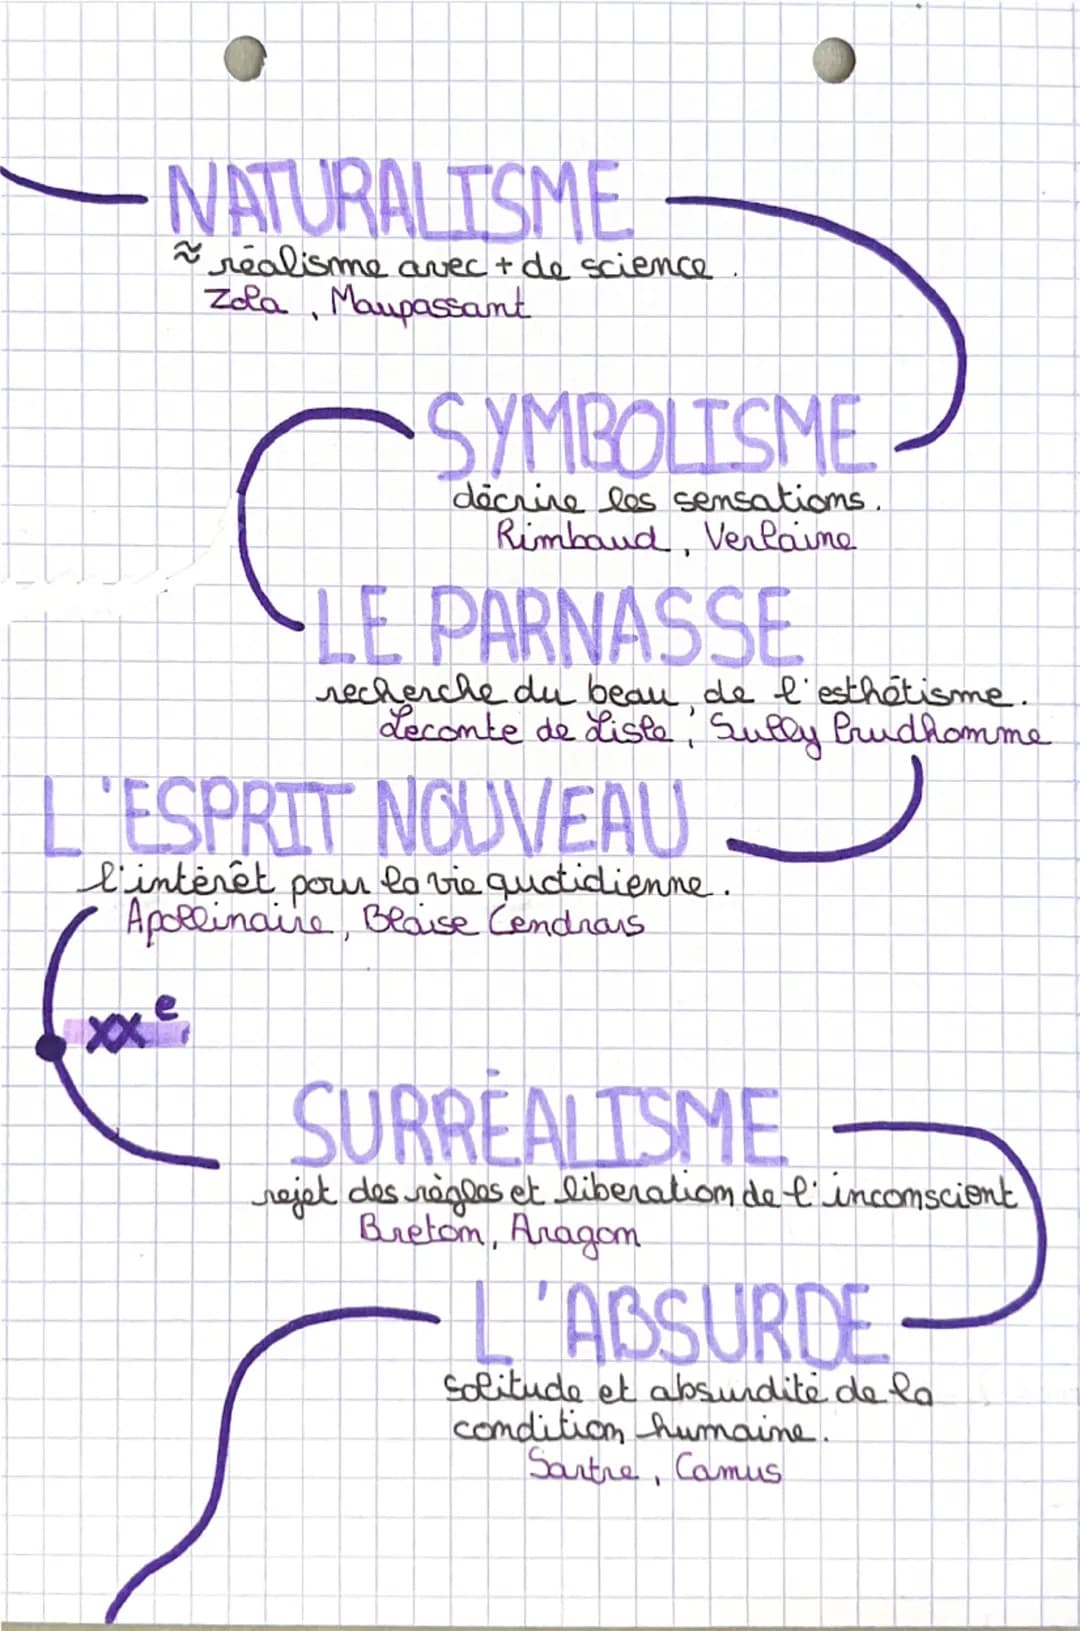 NATURALISME
≈ réalisme avec + de science.
Zola, Maupassant
SYMBOLISME
décrire les sensations.
Rimbaud, Verlaine
LE PARNASSE
recherche du beau, de l'esthétisme.
Leconte de Lisle, Sully Prudhomme
L'ESPRIT NOUVEAU
l'intérêt pour la vie quotidienne.
Apollinaire, Blaise Cendrars
XXe
SURRÉALISME
rejet des règles et liberation de l'inconscient
Breton, Aragon
L'ABSURDE
solitude et absurdité de la
condition humaine.
Sartre, Camus